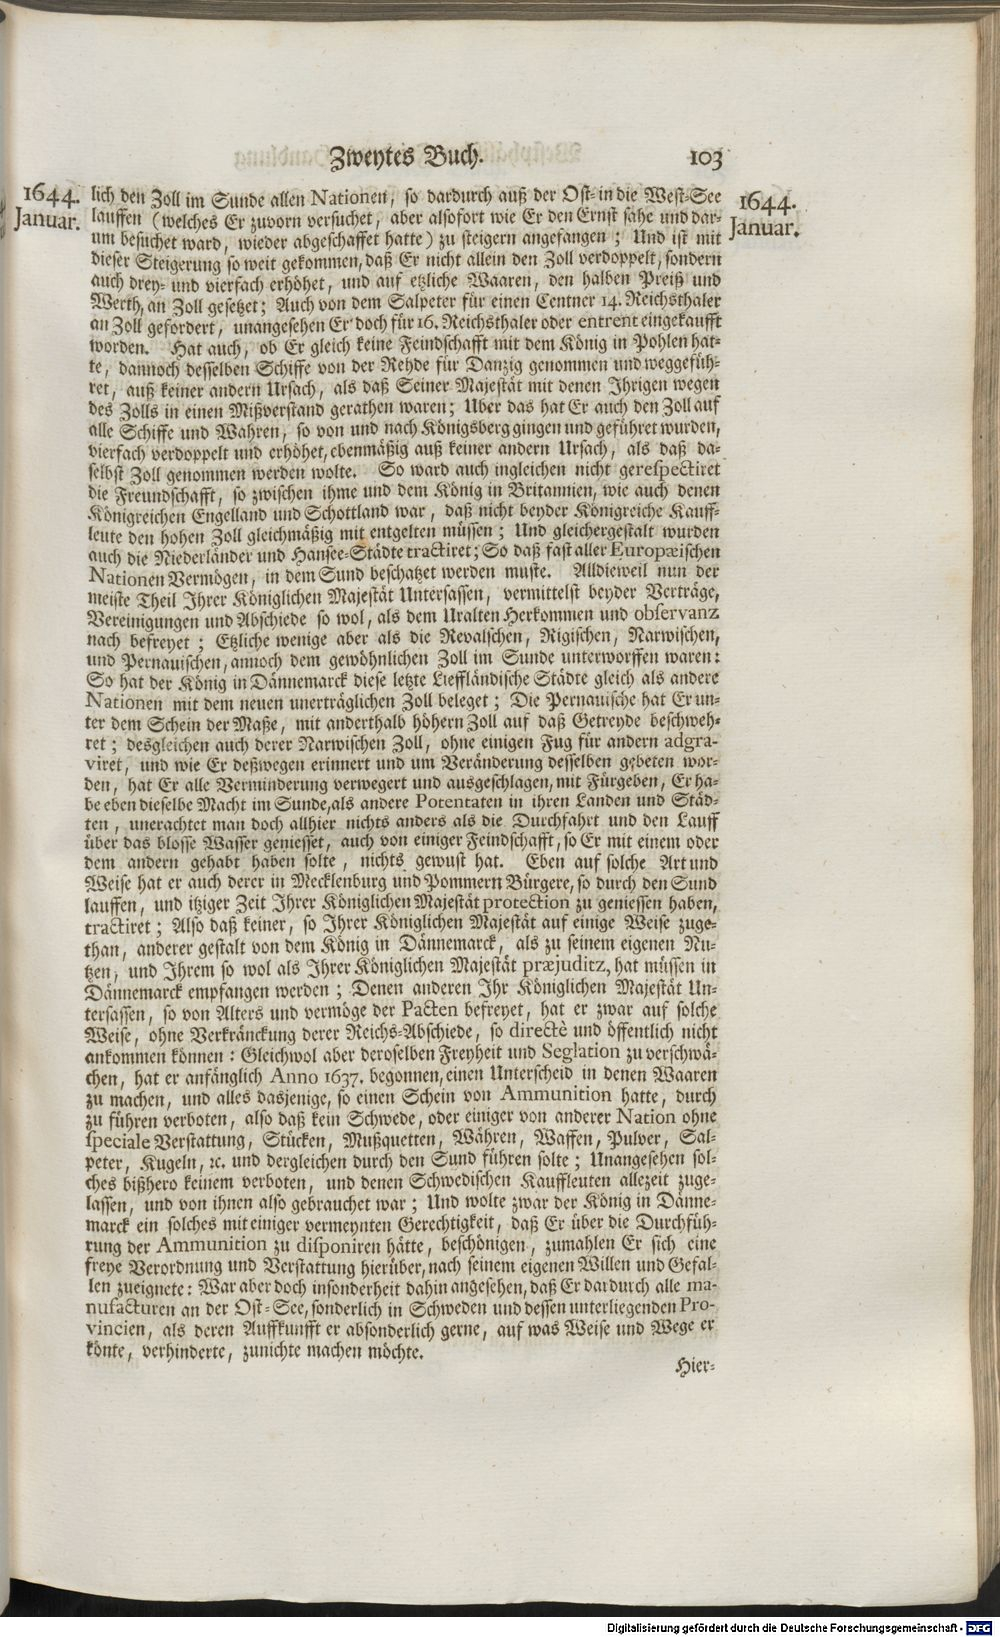 Zweytes Buch. 103
1644. Januar.
1644. Januar.
lich den Zoll im Sunde allen Nationen, so dardurch auß der Ost- in die West-See
lauffen (welches Er zuvorn versuchet, aber alsofort wie Er den Ernst sahe und dar-
um besuchet ward, wieder abgeschaffet hatte) zu steigern angefangen; Und ist mit
dieser Steigerung so weit gekommen, daß Er nicht allein den Zoll verdoppelt, sondern
auch drey- und vierfach erhöhet, und auf etzliche Waaren, den halben Preiß und
Werth, an Zoll gesetzet; Auch von dem Salpeter für einen Centner 14. Reichsthaler
an Zoll gefordert, unangesehen Er doch für 16. Reichsthaler oder entrent eingekaufft
worden. Hat auch, ob Er gleich keine Feindschafft mit dem König in Pohlen hat-
te, dannoch desselben Schiffe von der Rehde für Danzig genommen und weggefüh-
ret, auß keiner andern Ursach, als daß Seiner Majestät mit denen Ihrigen wegen
des Zolls in einen Mißverstand gerathen waren; Uber das hat Er auch den Zoll auf
alle Schiffe und Wahren, so von und nach Königsberg gingen und geführet wurden,
vierfach verdoppelt und erhöhet, ebenmäßig auß keiner andern Ursach, als daß da-
selbst Zoll genommen werden wolte. So ward auch ingleichen nicht gerespectiret
die Freundschafft, so zwischen ihme und dem König in Britannien, wie auch denen
Königreichen Engelland und Schottland war, daß nicht beyder Königreiche Kauff-
leute den hohen Zoll gleichmäßig mit entgelten müssen; Und gleichergestalt wurden
auch die Niederländer und Hansee-Städte tractiret; So daß fast aller Europæischen
Nationen Vermögen, in dem Sund beschatzet werden muste. Alldieweil nun der
meiste Theil Ihrer Königlichen Majestät Untersassen, vermittelst beyder Verträge,
Vereinigungen und Abschiede so wol, als dem Uralten Herkommen und observanz
nach befreyet; Etzliche wenige aber als die Revalschen, Rigischen, Narwischen,
und Pernauischen, annoch dem gewöhnlichen Zoll im Sunde unterworffen waren:
So hat der König in Dännemarck diese letzte Lieffländische Städte gleich als andere
Nationen mit dem neuen unerträglichen Zoll beleget; Die Pernauische hat Er un-
ter dem Schein der Maße, mit anderthalb höhern Zoll auf daß Getreyde beschweh-
ret; desgleichen auch derer Narwischen Zoll, ohne einigen Fug für andern adgra-
viret, und wie Er deßwegen erinnert und um Veränderung desselben gebeten wor-
den, hat Er alle Verminderung verwegert und ausgeschlagen, mit Fürgeben, Er ha-
be eben dieselbe Macht im Sunde, als andere Potentaten in ihren Landen und Städ-
ten, unerachtet man doch allhier nichts anders als die Durchfahrt und den Lauff
über das blosse Wasser geniesset, auch von einiger Feindschafft, so Er mit einem oder
dem andern gehabt haben solte, nichts gewust hat. Eben auf solche Art und
Weise hat er auch derer in Mecklenburg und Pommern Bürgere, so durch den Sund
lauffen, und itziger Zeit Ihrer Königlichen Majestät protection zu geniessen haben,
tractiret; Also daß keiner, so Ihrer Königlichen Majestät auf einige Weise zuge-
than, anderer gestalt von dem König in Dännemarck, als zu seinem eigenen Nu-
tzen, und Ihrem so wol als Ihrer Königlichen Majestät præjuditz, hat müssen in
Dännemarck empfangen werden; Denen anderen Ihr Königlichen Majestät Un-
tersassen, so von Alters und vermöge der Pacten befreyet, hat er zwar auf solche
Weise, ohne Verkränckung derer Reichs-Abschiede, so directè und öffentlich nicht
ankommen können: Gleichwol aber deroselben Freyheit und Seglation zu verschwä-
chen, hat er anfänglich Anno 1637. begonnen, einen Unterscheid in denen Waaren
zu machen, und alles dasjenige, so einen Schein von Ammunition hatte, durch
zu führen verboten, also daß kein Schwede, oder einiger von anderer Nation ohne
speciale Verstattung, Stücken, Mußquetten, Währen, Waffen, Pulver, Sal-
peter, Kugeln, ꝛc. und dergleichen durch den Sund führen solte; Unangesehen sol-
ches bißhero keinem verboten, und denen Schwedischen Kauffleuten allezeit zuge-
lassen, und von ihnen also gebrauchet war; Und wolte zwar der König in Dänne-
marck ein solches mit einiger vermeynten Gerechtigkeit, daß Er über die Durchfüh-
rung der Ammunition zu disponiren hätte, beschönigen, zumahlen Er sich eine
freye Verordnung und Verstattung hierüber, nach seinem eigenen Willen und Gefal-
len zueignete: War aber doch insonderheit dahin angesehen, daß Er dardurch alle ma-
nufacturen an der Ost-See, sonderlich in Schweden und dessen unterliegenden Pro-
vincien, als deren Auffkunfft er absonderlich gerne, auf was Weise und Wege er
könte, verhinderte, zunichte machen möchte.
Hier-
Digitalisierung gefördert durch die Deutsche Forschungsgemeinschaft - DFG